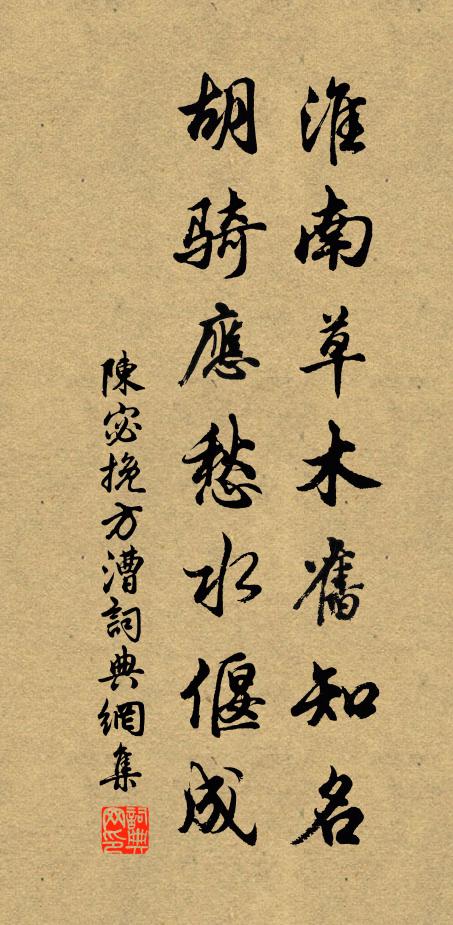 淮南草木舊知名
胡騎應愁水偃成
陳宓挽方漕詞典網集
詞典網印